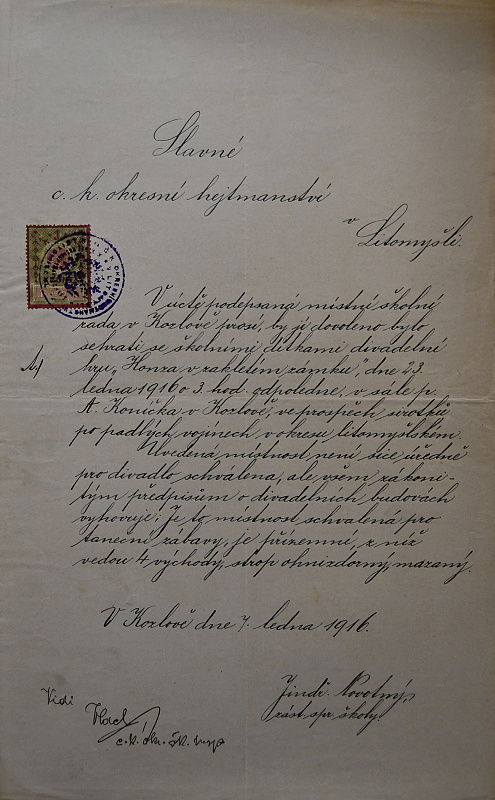 Slavné
c. k. okresní hejtmanství
v
Litomyšli.
V úctě podepsaná místní školní
rada v Kozlově prosí, by jí dovoleno bylo
sehrati se školními dítkami divadelní
hru „Honza v zakletém zámku", dne 23.
ledna 1916 o 3. hod. odpoledne, v sále p.
A. Koníčka v Kozlově, ve prospěch sirotků
po padlých vojínech v okresu litomyšlském.
Uvedená místnost není sice úředně
pro divadlo schválena, ale všem zákoni-
tým předpisům o divadelních budovách
vyhovuje; je to místnost schválená pro
taneční zábavy, je přízemní, z níž
vedou 4 východy, strop ohnivzdorný, mazaný.
V Kozlově dne 7. ledna 1916.
Jindř. Novotný,
zást. spr. školy.
Vidi
c. k. okr. šk. insp.